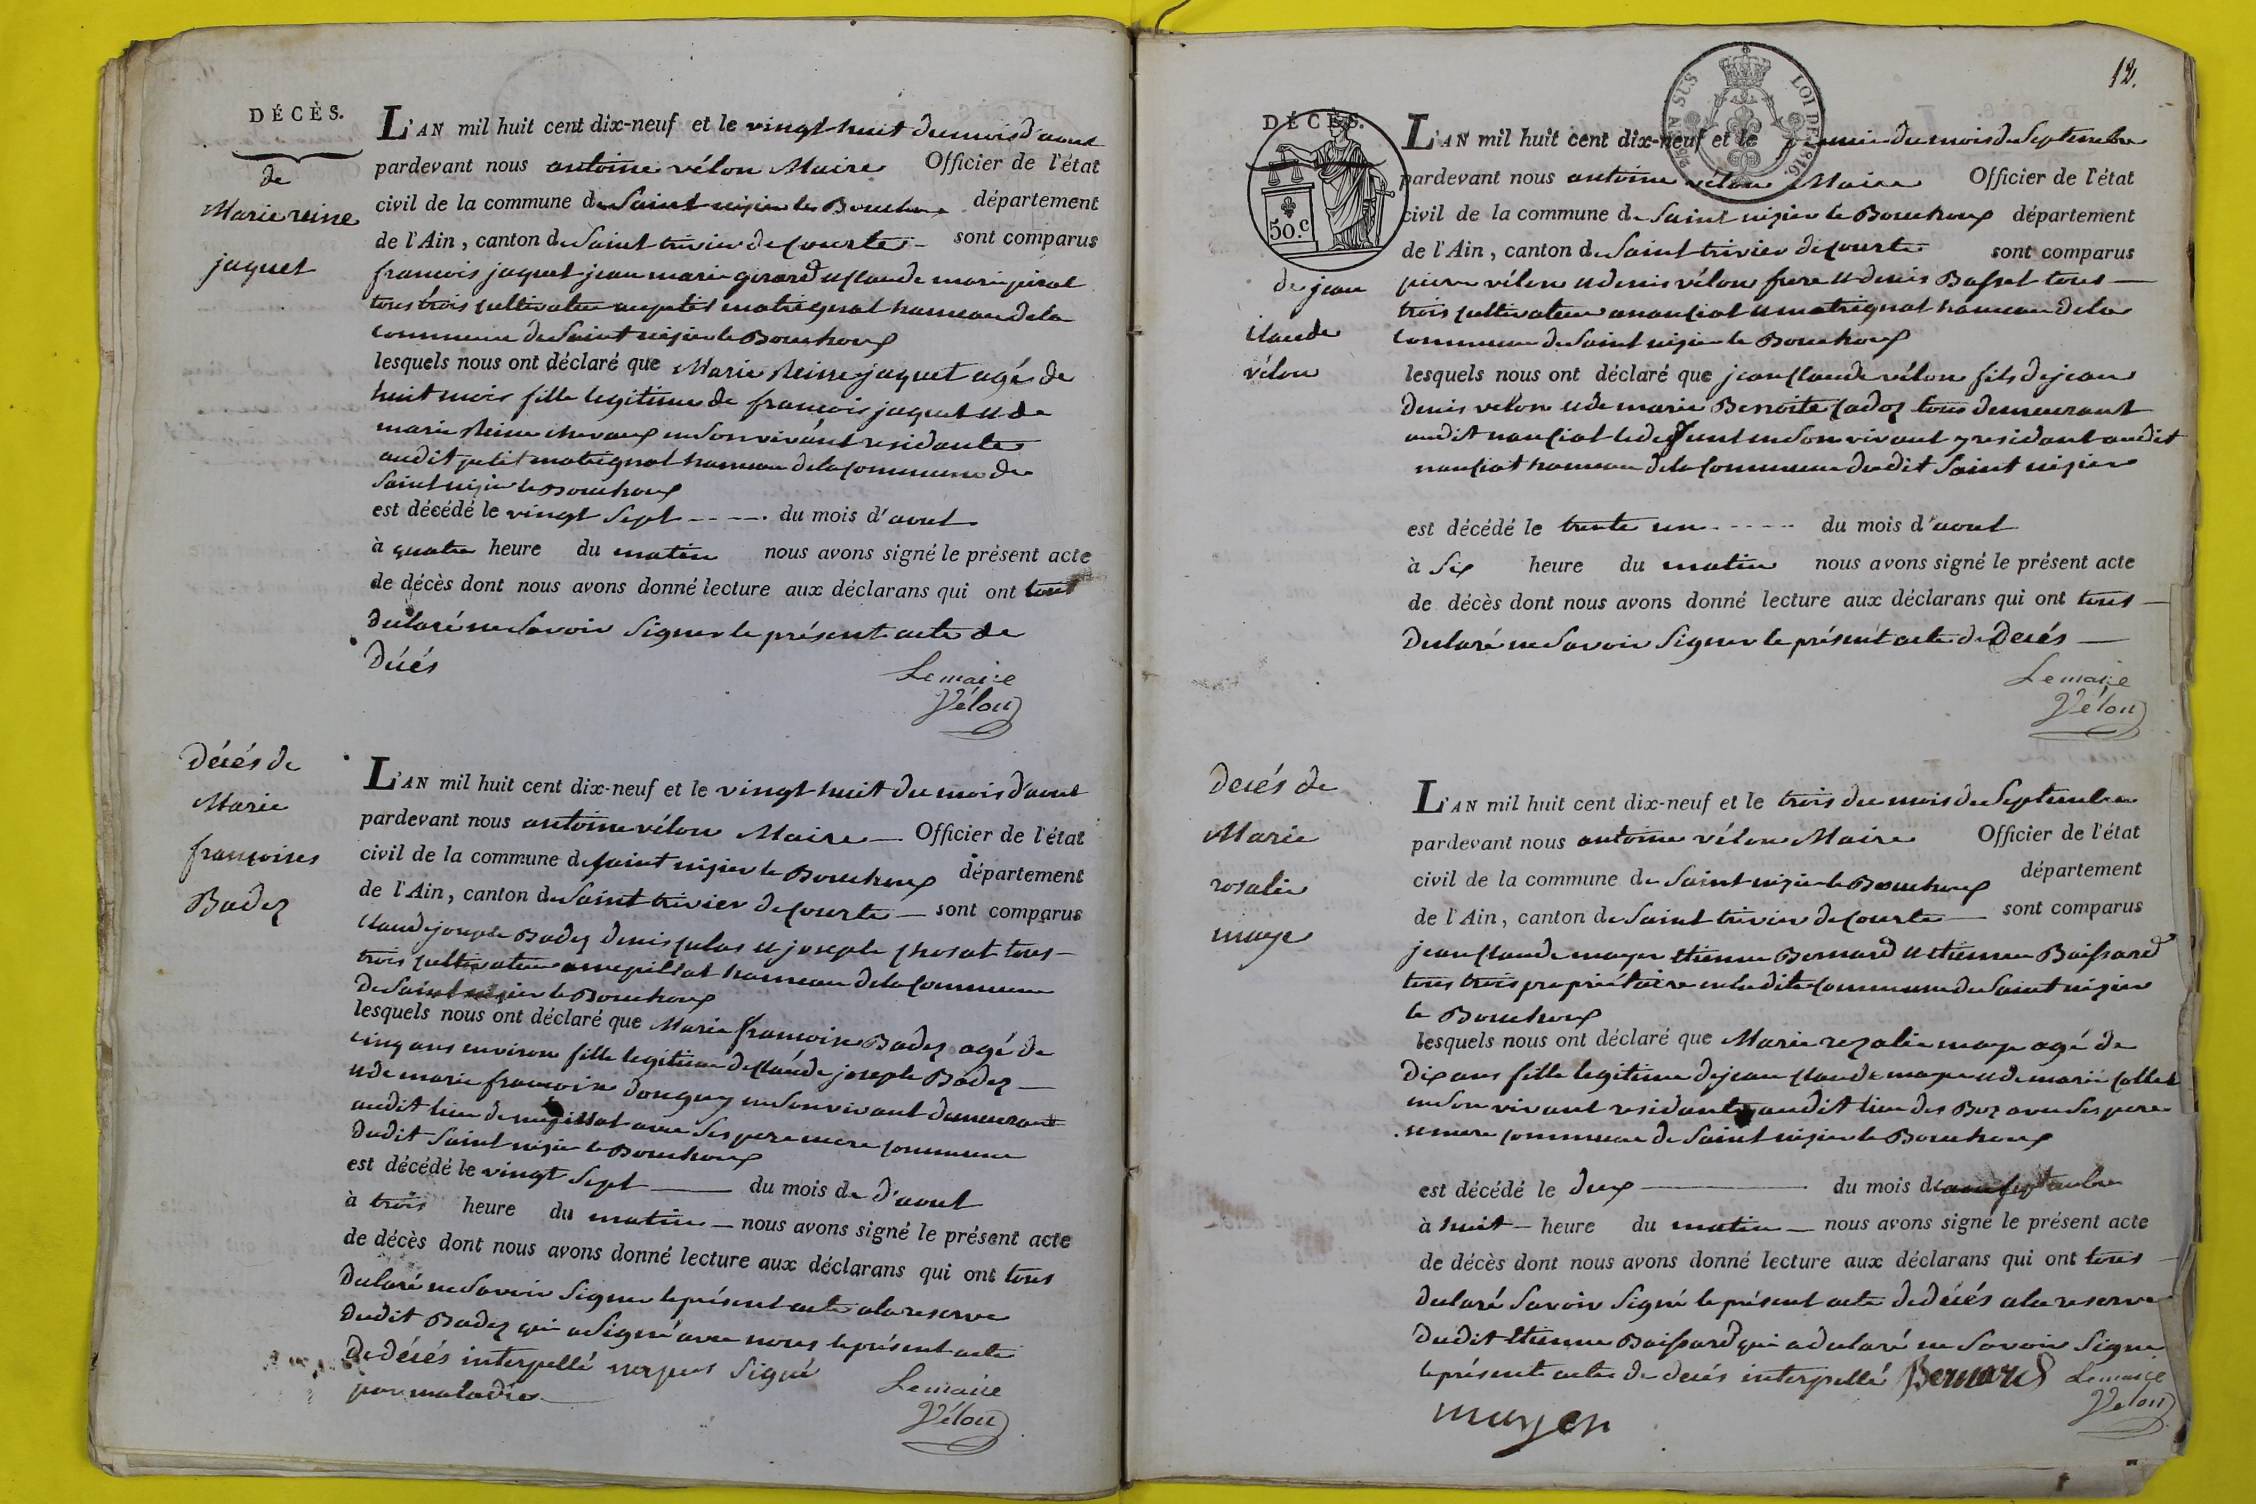 DÉCÈS.
de
Marie reine
jaquet
L'AN mil huit cent dix-neuf et le vingt huit du mois d'aout
pardevant nous antoine vélon Maire Officier de l'état
civil de la commune de Saint nizier le Bouchoux département
de l'Ain, canton de Saint trivier de Courte sont comparus
francois jaquet jean marie girard et Claude marie
tous trois cultivateur au petit matrignat hameau de la
commune de Saint nizier le Bouchoux
lesquels nous ont déclaré que Marie Reine jaquet agé de
huit mois fille legitime de francois jaquet et de
marie Reine chevaux en son vivant residante
audit petit matrignat hameau de la Commune de
Saint nizier le Bouchoux
est décédé le vingt Sept du mois d'aout
à quatre heure du matin nous avons signé le présent acte
de décès dont nous avons donné lecture aux déclarans qui ont tous
declaré ne Savoir Signer le présent acte de
décés
Lemaire
Vélon
Décés de
Marie
francoises
Badez
L'AN mil huit cent dix-neuf et le vingt huit du mois d'aout
pardevant nous antoine vélon Maire Officier de l'état
civil de la commune de Saint nizier le Bouchoux département
de l'Ain, canton de Saint trivier de Courte sont comparus
Claude joseph Badez denis et joseph Chosat tous
trois cultivateur a hameau de la Commune
de Saint nizier le Bouchoux
lesquels nous ont déclaré que Marie francoise Badez agé de
cinq ans environ fille legitime de Claude joseph Badez
et de marie francoise donguy en Son vivant demeurant
audit lieu de avec Ses pere mere commune
dudit Saint nizier le Bouchoux
est décédé le vingt Sept du mois de d'aout
à trois heure du matin nous avons signé le présent acte
de décès dont nous avons donné lecture aux déclarans qui ont tous
declaré ne Savoir Signer le présent acte a la reserve
dudit Badez qui a Signé avec nous le présent acte
de décés interpellé Signé
par maladie
Lemaire
Vélon
12.
TIMBRE SUS LOI DE 1816.
50.c
DÉCÈS.
de jean
Claude
vélon
L'AN mil huit cent dix-neuf et le premier du mois de Septembre
pardevant nous antoine vélon Maire Officier de l'état
civil de la commune de Saint nizier le Bouchoux département
de l'Ain, canton de Saint trivier de Courte sont comparus
pierre vélon et denis vélon frere et denis Basset tous
trois cultivateur a nanciat et matrignat hameau de la
Commune de Saint nizier le Bouchoux
lesquels nous ont déclaré que jean Claude vélon fils de jean
denis velon et de marie Benoite Cadoz tous demeurant
audit nanciat le defunt en Son vivant y residant audit
nanciat hameau de la Commune dudit Saint nizier
est décédé le trente un du mois d'aout
à Six heure du matin nous avons signé le présent acte
de décès dont nous avons donné lecture aux déclarans qui ont tous
declaré ne Savoir Signer le présent acte de Décés
Lemaire
Vélon
Decés de
Marie
rosalie
maye
L'AN mil huit cent dix-neuf et le trois du mois de Septembre
pardevant nous antoine vélon Maire Officier de l'état
civil de la commune de Saint nizier le Bouchoux département
de l'Ain, canton de Saint trivier de Courte sont comparus
jean Claude mayer etienne Bernard et etienne Baissard
tous trois propriétaire en la dite Commune de Saint nizier
le Bouchoux
lesquels nous ont déclaré que Marie rozalie maye agé de
dix ans fille legitime de jean Claude maye et de marie Collet
en Son vivant residante audit lieu des Boz avec Ses pere
et mere commune de Saint nizier le Bouchoux
est décédé le deux du mois de Septembre
à huit heure du matin nous avons signé le présent acte
de décès dont nous avons donné lecture aux déclarans qui ont tous
declaré Savoir Signé le présent acte de décés a la reserve
dudit etienne Baissard qui a declaré ne Savoir Signe
le présent acte de decés interpellé Bernard Lemaire
Velon
mayer